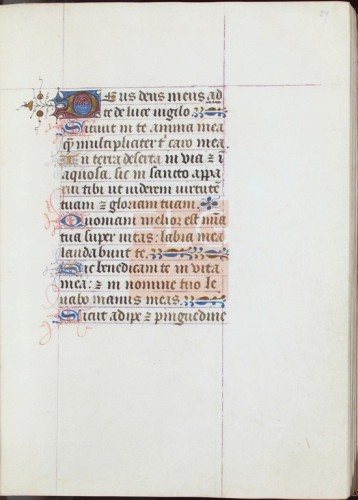 Deus deus meus ad
te de luce vigilo.
Sitivit in te anima mea
q̄ multipliciter t̄ caro mea.
In terra deserta in via ⁊ ī
aquosa. sic in sancto appa
rui tibi ut viderem virtutē
tuam ⁊ gloriam tuam.
Quoniam melior est mīa
tua super vitas: labia mea
laudabunt te.
Sic benedicam te in vita
mea: ⁊ in nomine tuo le
vabo manus meas.
Sicut adipe ⁊ pinguedine